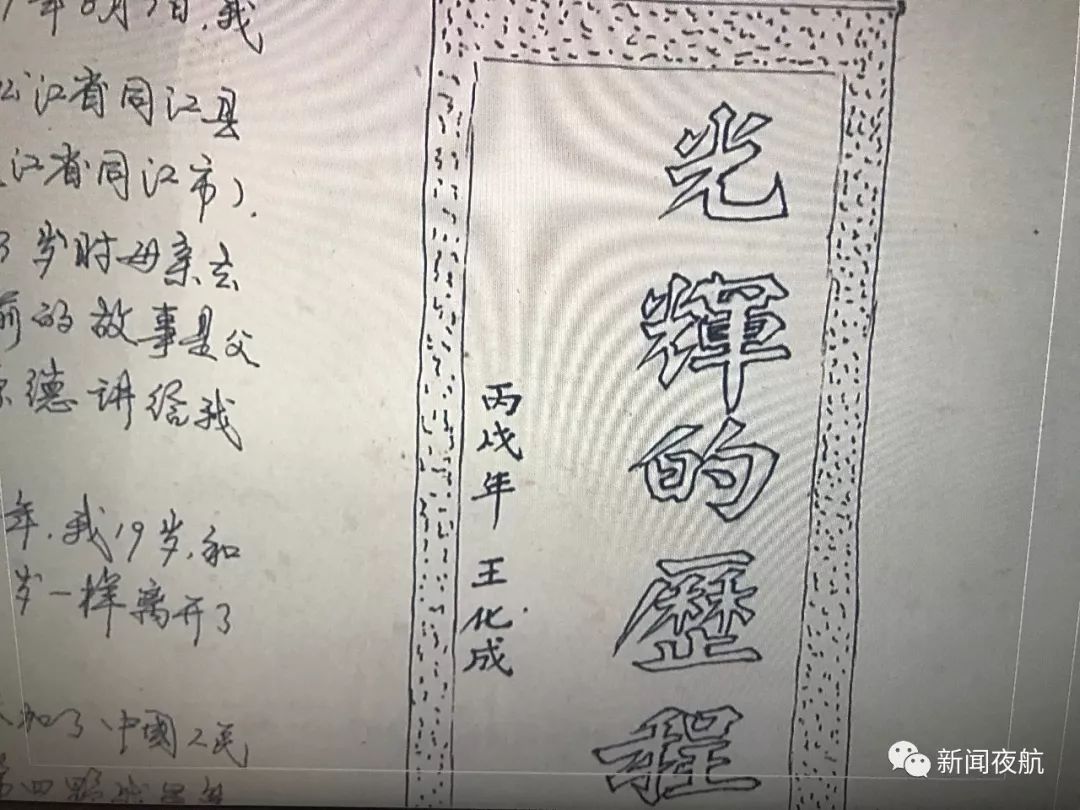 日,我
江省同江县
江省同江市).
岁时母亲去
前的故事是父
德讲给我
年,我19岁,和
岁一样离开了
加了中國人民
光輝的歷程
丙戌年 王化成
新闻夜航